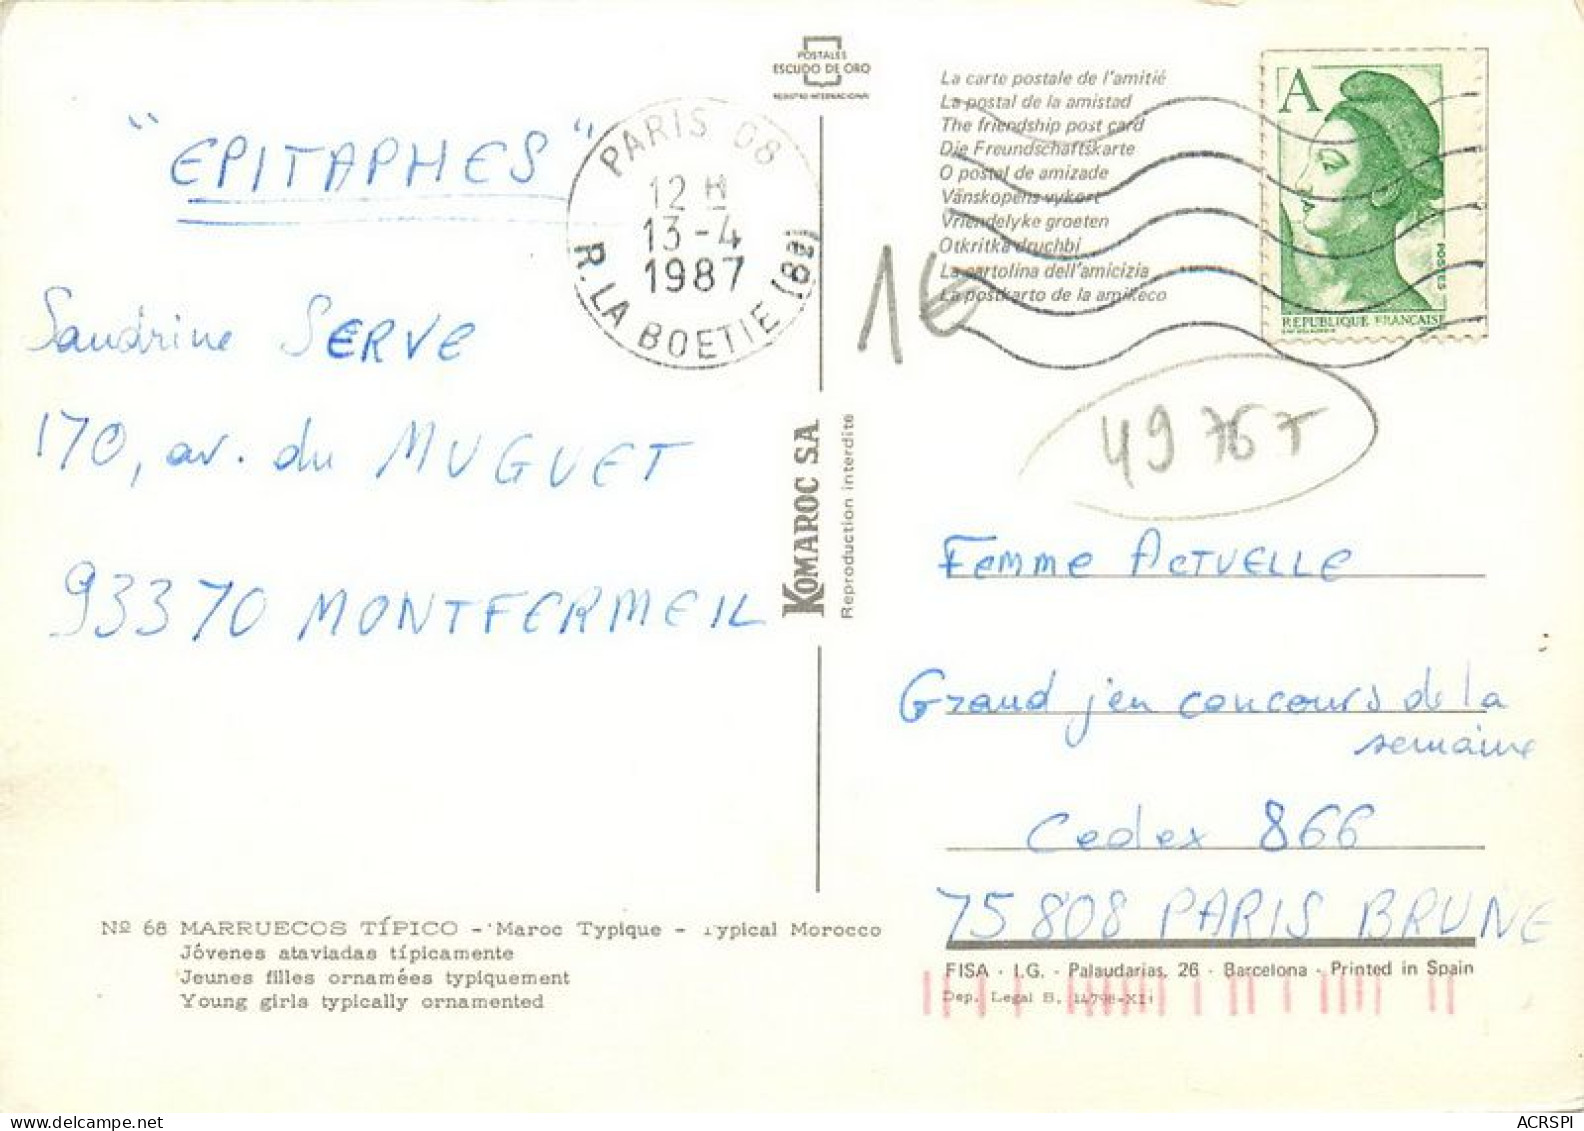 "EPITAPHES"
Sandrine SERVE
170, av. du MUGUET
93370 MONTFERMEIL
Nº 68 MARRUECOS TÍPICO - Maroc Typique - Typical Morocco
Jóvenes ataviadas típicamente
Jeunes filles ornamées typiquement
Young girls typically ornamented
POSTALES
ESCUDO DE ORO
REGISTRO INTERNACIONAL
PARIS 08
12 H
13-4
1987
R. LA BOETIE (8e)
KOMAROC S.A
Reproduction interdite
La carte postale de l'amitié
La postal de la amistad
The friendship post card
Die Freundschaftskarte
O postal de amizade
Vänskopens vykort
Vriendelyke groeten
Otkritka druchbi
La cartolina dell'amicizia
La postkarto de la amikeco
A
POSTES
REPUBLIQUE FRANCAISE
1€
49767
Femme ACTUELLE
Grand jeu concours de la
semaine
Cedex 866
75808 PARIS BRUNE
FISA - I.G. - Palaudarias, 26 - Barcelona - Printed in Spain
Dep. Legal B. 14798-XII
ACRSPI